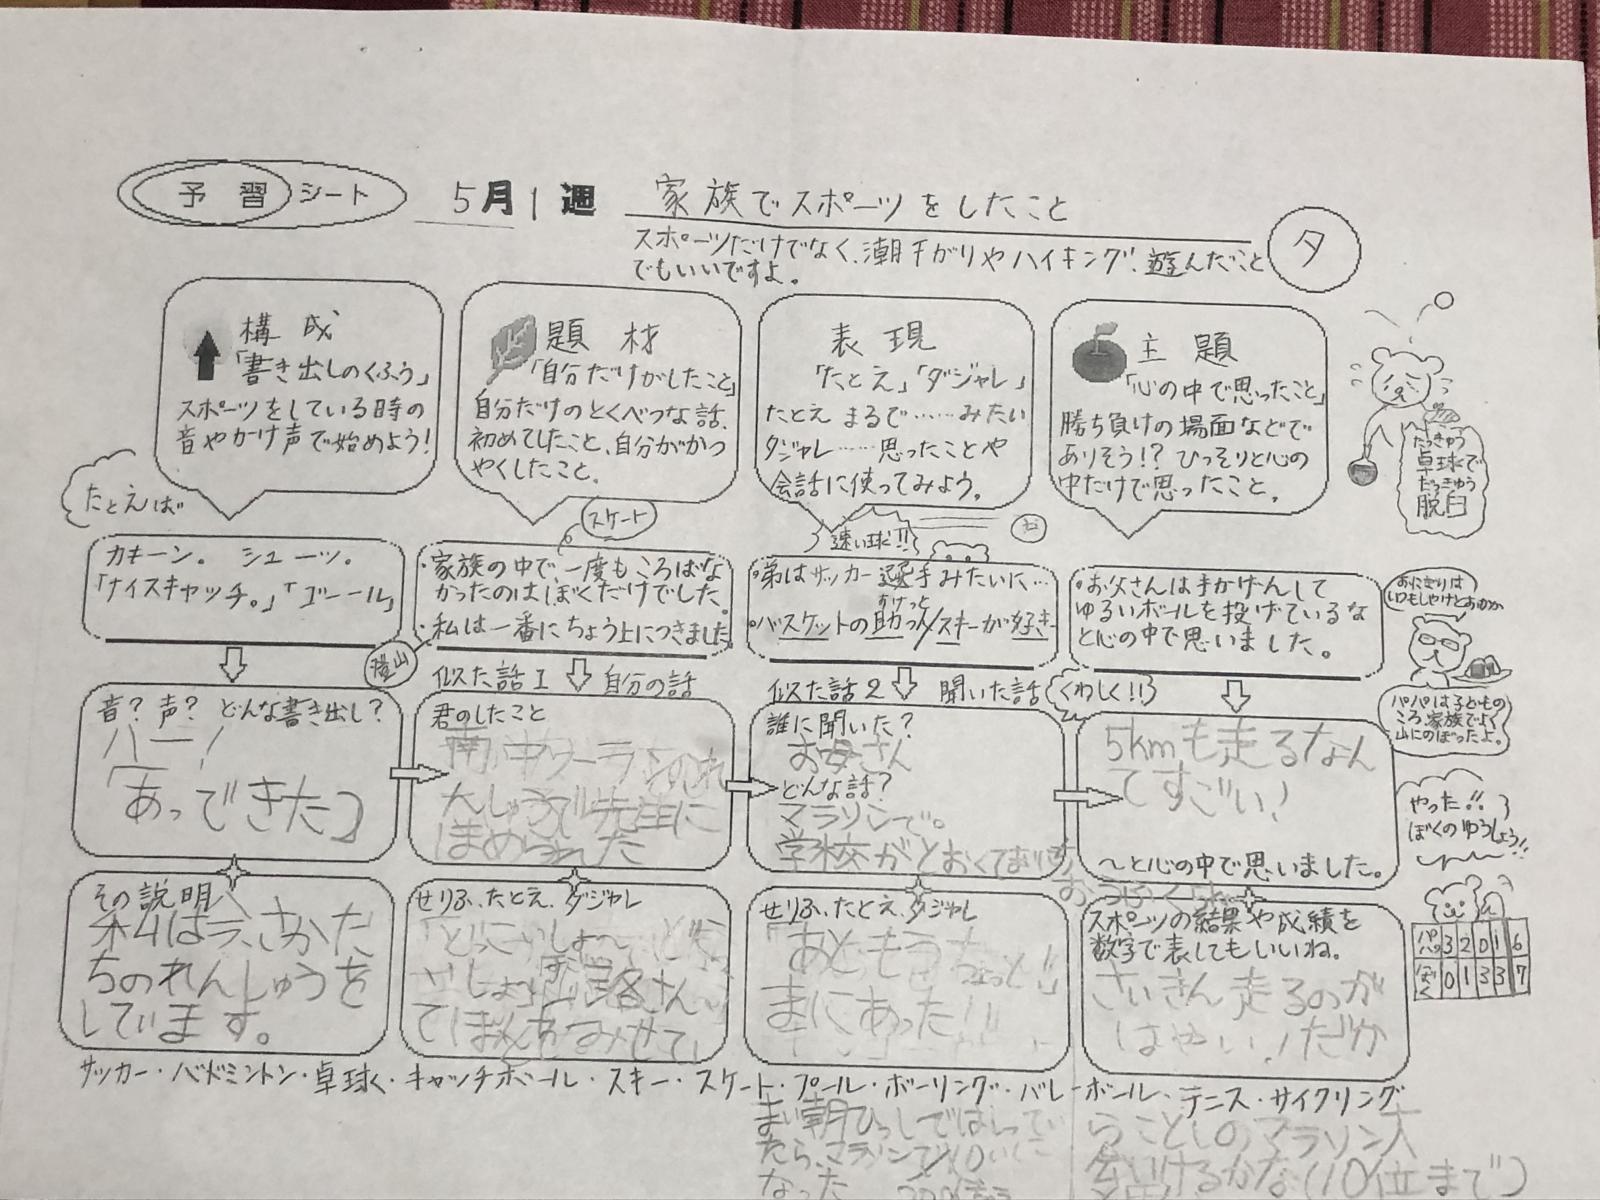 予習シート
5月1週
家族でスポーツをしたこと
スポーツだけでなく、潮干がりやハイキング、遊んだこと
でもいいですよ。
夕
構成
「書き出しのくふう」
スポーツをしている時の
音やかけ声で始めよう!
題材
「自分だけがしたこと」
自分だけのとくべつな話、
初めてしたこと、自分がかつ
やくしたこと。
表現
「たとえ」「ダジャレ」
たとえ まるで……みたい
ダジャレ……思ったことや
会話に使ってみよう。
主題
「心の中で思ったこと」
勝ち負けの場面などで
ありそう!? ひっそりと心の
中だけで思ったこと。
たっきゅう
卓球で
だっきゅう
脱臼
たとえば
カキーン。 シューッ。
「ナイスキャッチ。」「ゴール」
スケート
・家族の中で、一度もころばな
かったのはぼくだけでした。
・私は一番にちょう上につきました
登山
速い球!!
お
・弟はサッカー選手みたいに…
・バスケットの助っ人/スキーが好き
すけっと
・お父さんは手かげんして
ゆるいボールを投げているな
と心の中で思いました。
おにぎりは
いつもしゃけとおかか
パパは子どもの
ころ、家族でよく
山にのぼったよ。
音? 声? どんな書き出し?
ハー!
「あっできた」
似た話1 自分の話
君のしたこと
先生に
ほめられた
似た話2 聞いた話
くわしく!!
誰に聞いた?
お母さん
どんな話?
マラソンで。
学校がとおくて
5kmも走るなん
てすごい!
〜と心の中で思いました。
やった!!
ぼくのゆうしょう!!
その説明
私は今、さかだ
ちのれんしゅうを
しています。
せりふ、たとえ、ダジャレ
せりふ、たとえ、ダジャレ
「あともうちょっと!」
まにあった!!
スポーツの結果や成績を
数字で表してもいいね。
さいきん走るのが
はやい!だか
パパ 3 2 0 1 6
ぼく 0 1 3 3 7
サッカー・バドミントン・卓球・キャッチボール・スキー・スケート・プール・ボーリング・バレーボール・テニス・サイクリング
まい朝ひっしではしってい
たら、マラソンで10いに
なった
らことしのマラソン大
会いけるかな(10位まで)